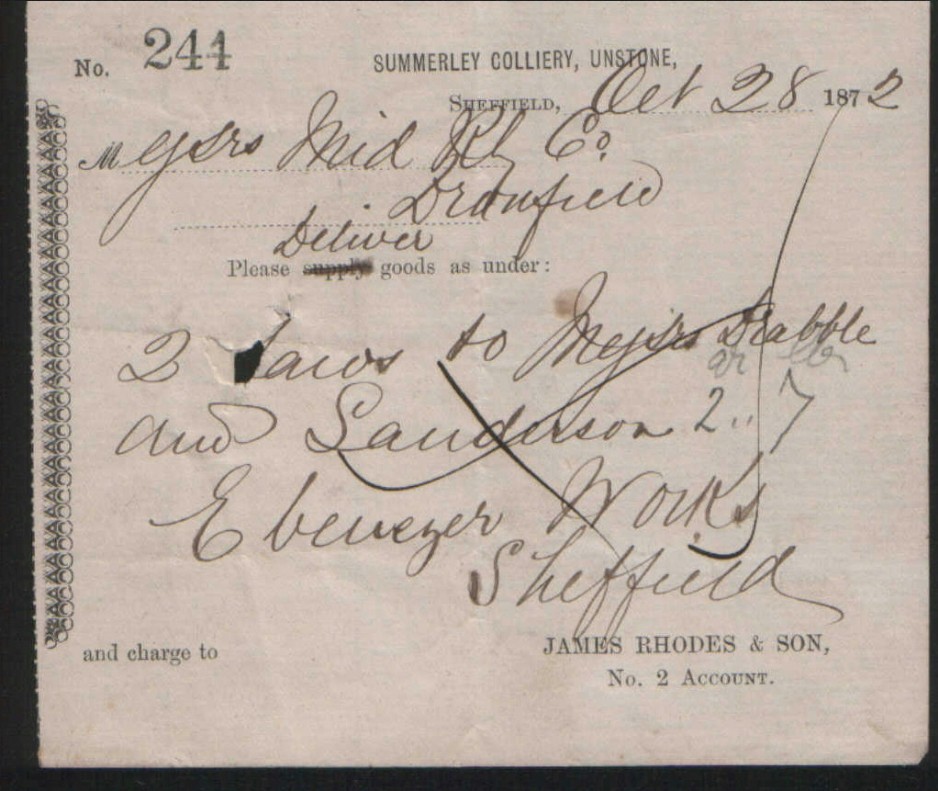 No. 244
SUMMERLEY COLLIERY, UNSTONE,
SHEFFIELD, Oct 28 1872
Messrs Mid Rly Co.
Dronfield
Deliver
Please supply goods as under:
2 to Messrs Drabble
and Sanderson 2.. 7
Ebenezer Works
Sheffield
and charge to
JAMES RHODES & SON,
No. 2 ACCOUNT.